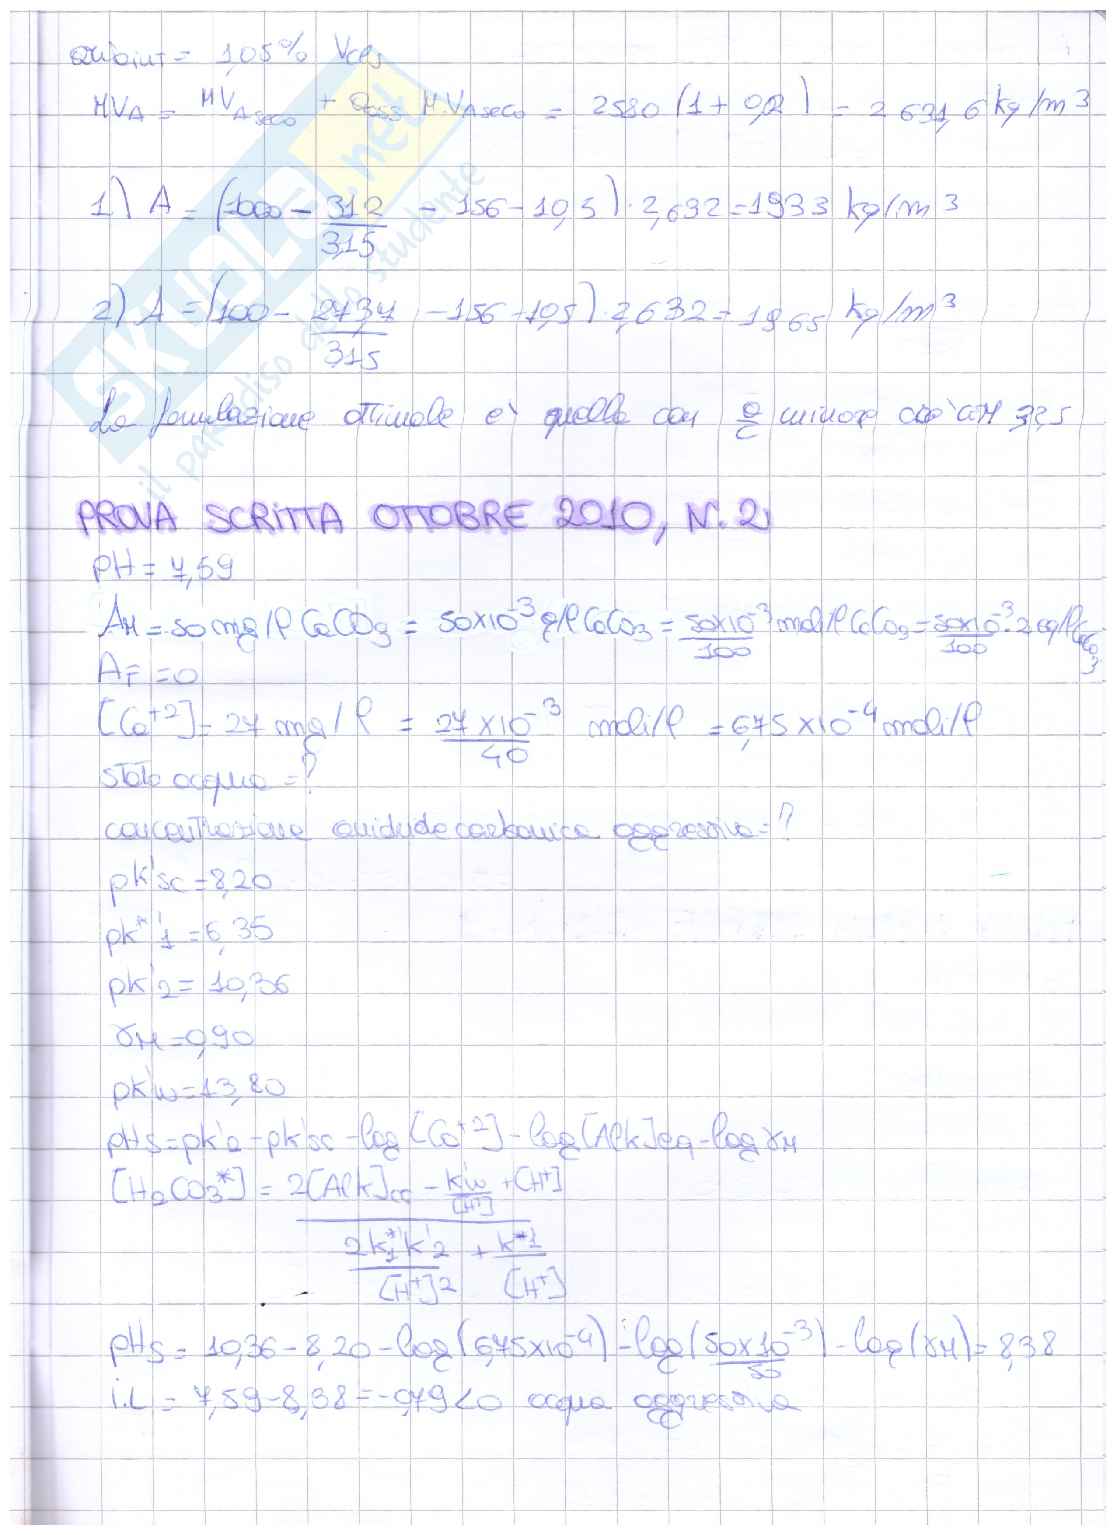 = 1,05% Vcls
MVA = MVAseco + ass MVAseco = 2580 (1 + 0,2) = 2631,6 kg/m³
1) A = (1000 - 312/3,15 - 156 - 10,5) · 2,632 = 1933 kg/m³
2) A = (100 - 273,7/3,15 - 156 - 10,5) 2,632 = 1965 kg/m³
La formulazione ottimale e' quella con a/c minore cioè CEM 32,5
PROVA SCRITTA OTTOBRE 2010, N. 2
pH = 7,59
AM = 50 mg/l CaCO3 = 50x10⁻³ g/l CaCO3 = 50x10⁻³/100 mol/l CaCO3 = 50x10⁻³/100 · 2 eq/l CaCO3
AF = 0
[Ca⁺²] = 27 mg/l = 27x10⁻³/40 moli/l = 6,75x10⁻⁴ moli/l
stato acqua = ?
concentrazione anidride carbonica aggressiva = ?
pk'sc = 8,20
pk*'1 = 6,35
pk'2 = 10,36
γM = 0,90
pk'w = 13,80
pHs = pk'2 - pk'sc - log[Ca⁺²] - log[Alk]eq - log γM
[H2CO3*] = 2[Alk]eq - k'w/[H⁺] + [H⁺]
2k*'1 k'2/[H⁺]² + k*'1/[H⁺]
pHs = 10,36 - 8,20 - log(6,75x10⁻⁴) - log(50x10⁻³/50) - log(γM) = 8,38
i.L = 7,59 - 8,38 = -0,79 < 0 acqua aggressiva
SKUOLA.net
il paradiso dello studente